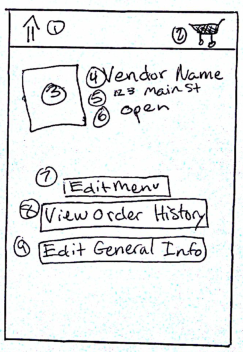 ① ②
③ ④ Vendor Name
⑤ 123 Main St
⑥ open
⑦
Edit Menu
⑧ View Order History
⑨ Edit General Info